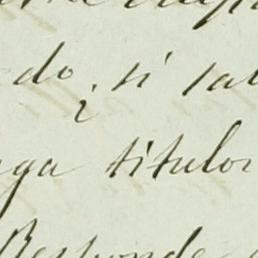 do, si sa
ga titulos
Responde